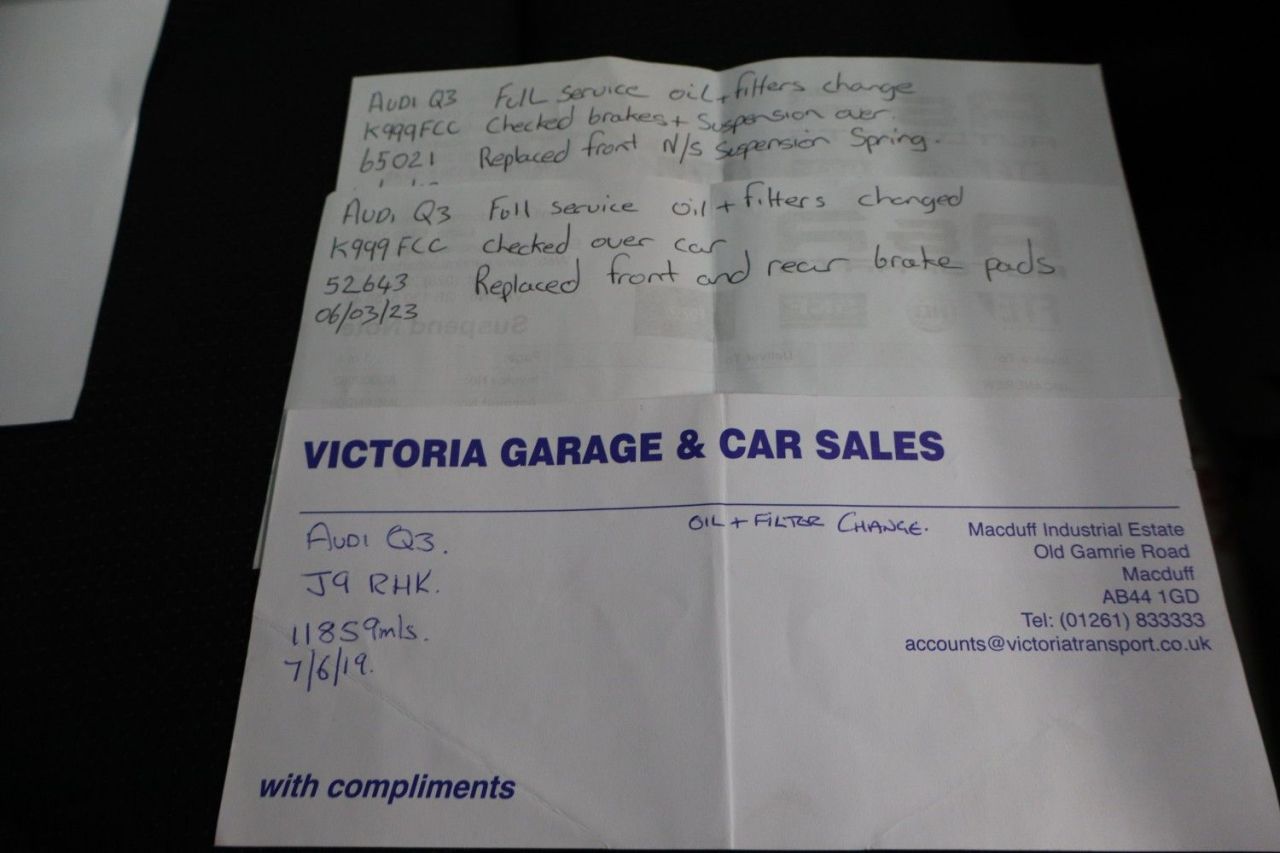 AUDI Q3 Full service oil + filters change
K999FCC Checked brakes + Suspension over.
65021 Replaced front N/S Suspension Spring.
AUDI Q3 Full service oil + filters changed
K999 FCC checked over car
52643 Replaced front and rear brake pads
06/03/23
Suspend Note
VICTORIA GARAGE & CAR SALES
AUDI Q3. OIL + FILTER CHANGE.
J9 RHK.
11859mls.
7/6/19.
Macduff Industrial Estate
Old Gamrie Road
Macduff
AB44 1GD
Tel: (01261) 833333
accounts@victoriatransport.co.uk
with compliments